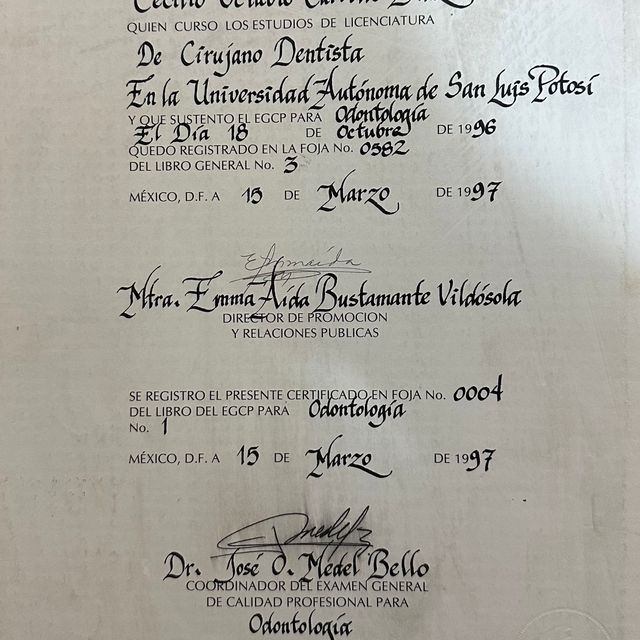 Cecilio Octavio
QUIEN CURSO LOS ESTUDIOS DE LICENCIATURA
De Cirujano Dentista
En la Universidad Autónoma de San Luis Potosí
Y QUE SUSTENTO EL EGCP PARA Odontología
El Día 18 DE Octubre DE 1996
QUEDO REGISTRADO EN LA FOJA No. 0582
DEL LIBRO GENERAL No. 3
MÉXICO, D.F. A 15 DE Marzo DE 1997
Mtra. Emma Aída Bustamante Vildósola
DIRECTOR DE PROMOCION
Y RELACIONES PUBLICAS
SE REGISTRO EL PRESENTE CERTIFICADO EN FOJA No. 0004
DEL LIBRO DEL EGCP PARA Odontología
No. 1
MÉXICO, D.F. A 15 DE Marzo DE 1997
Dr. José O. Medel Bello
COORDINADOR DEL EXAMEN GENERAL
DE CALIDAD PROFESIONAL PARA
Odontología